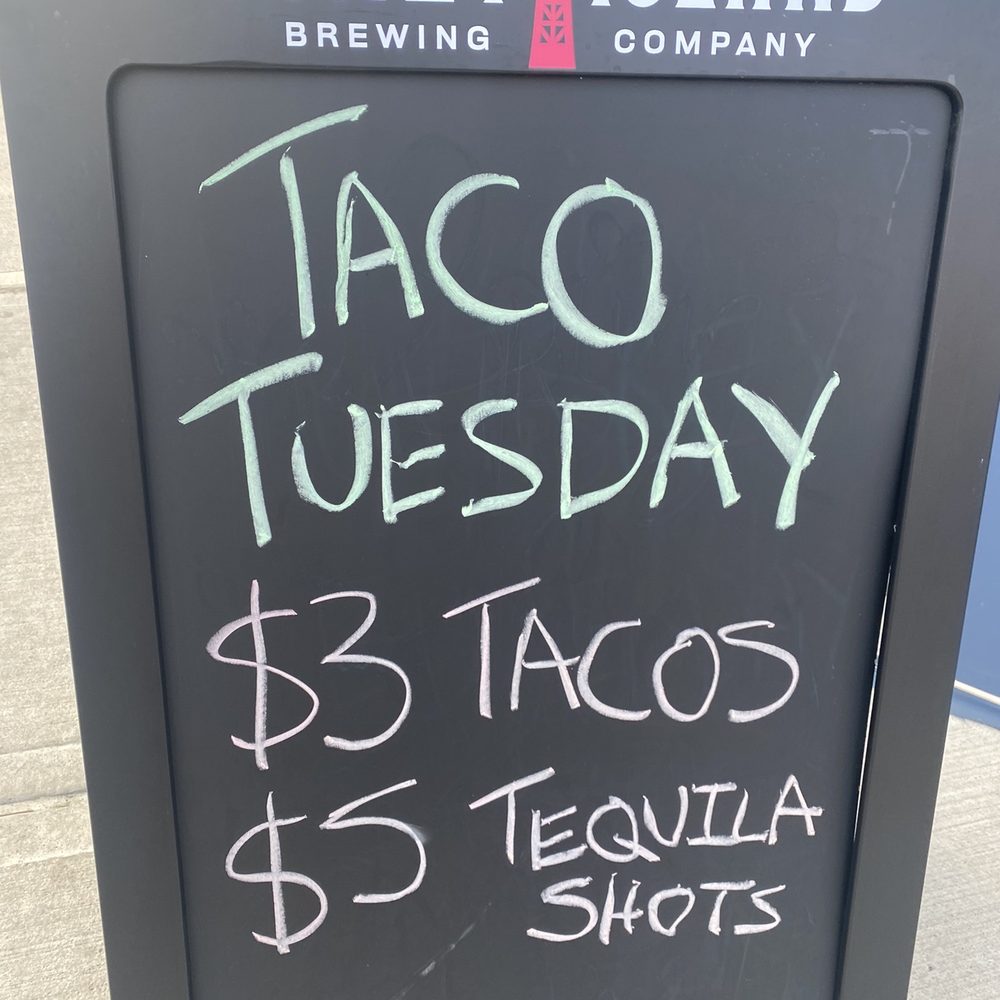 BREWING COMPANY
TACO
TUESDAY
$3 TACOS
$5 TEQUILA
SHOTS